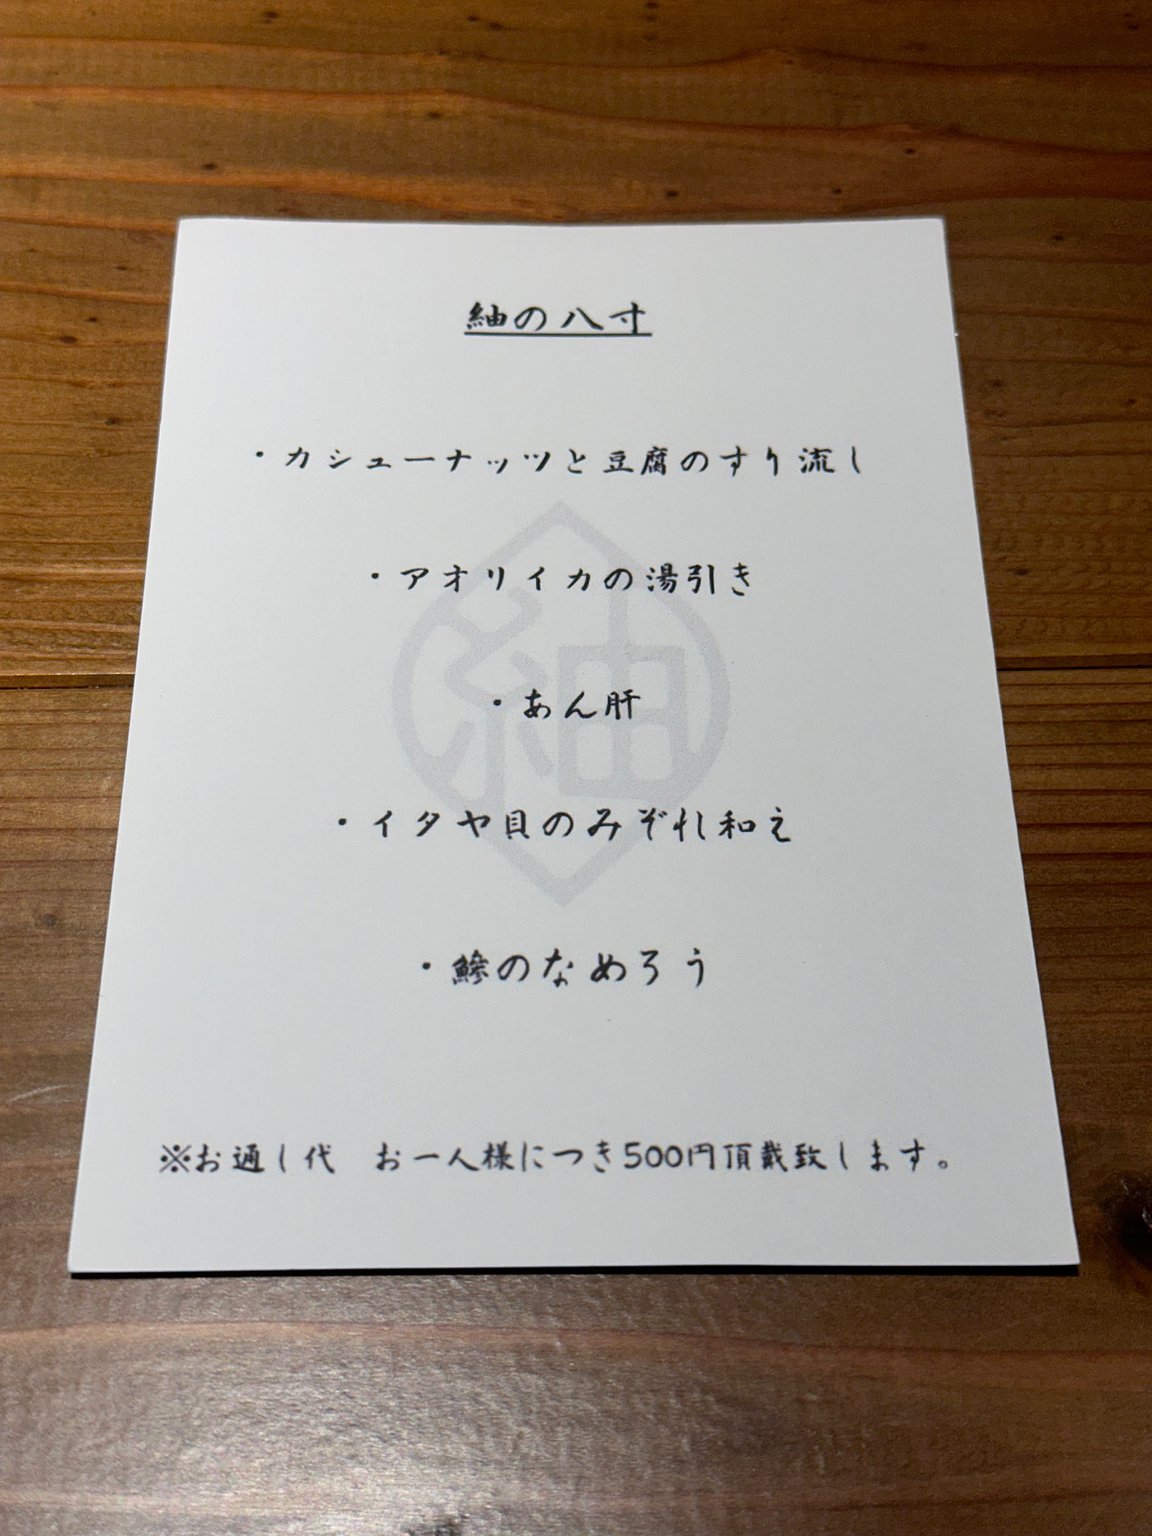 紬の八寸
・カシューナッツと豆腐のすり流し
・アオリイカの湯引き
紬
・あん肝
・イタヤ貝のみぞれ和え
・鯵のなめろう
※お通し代　お一人様につき500円頂戴致します。